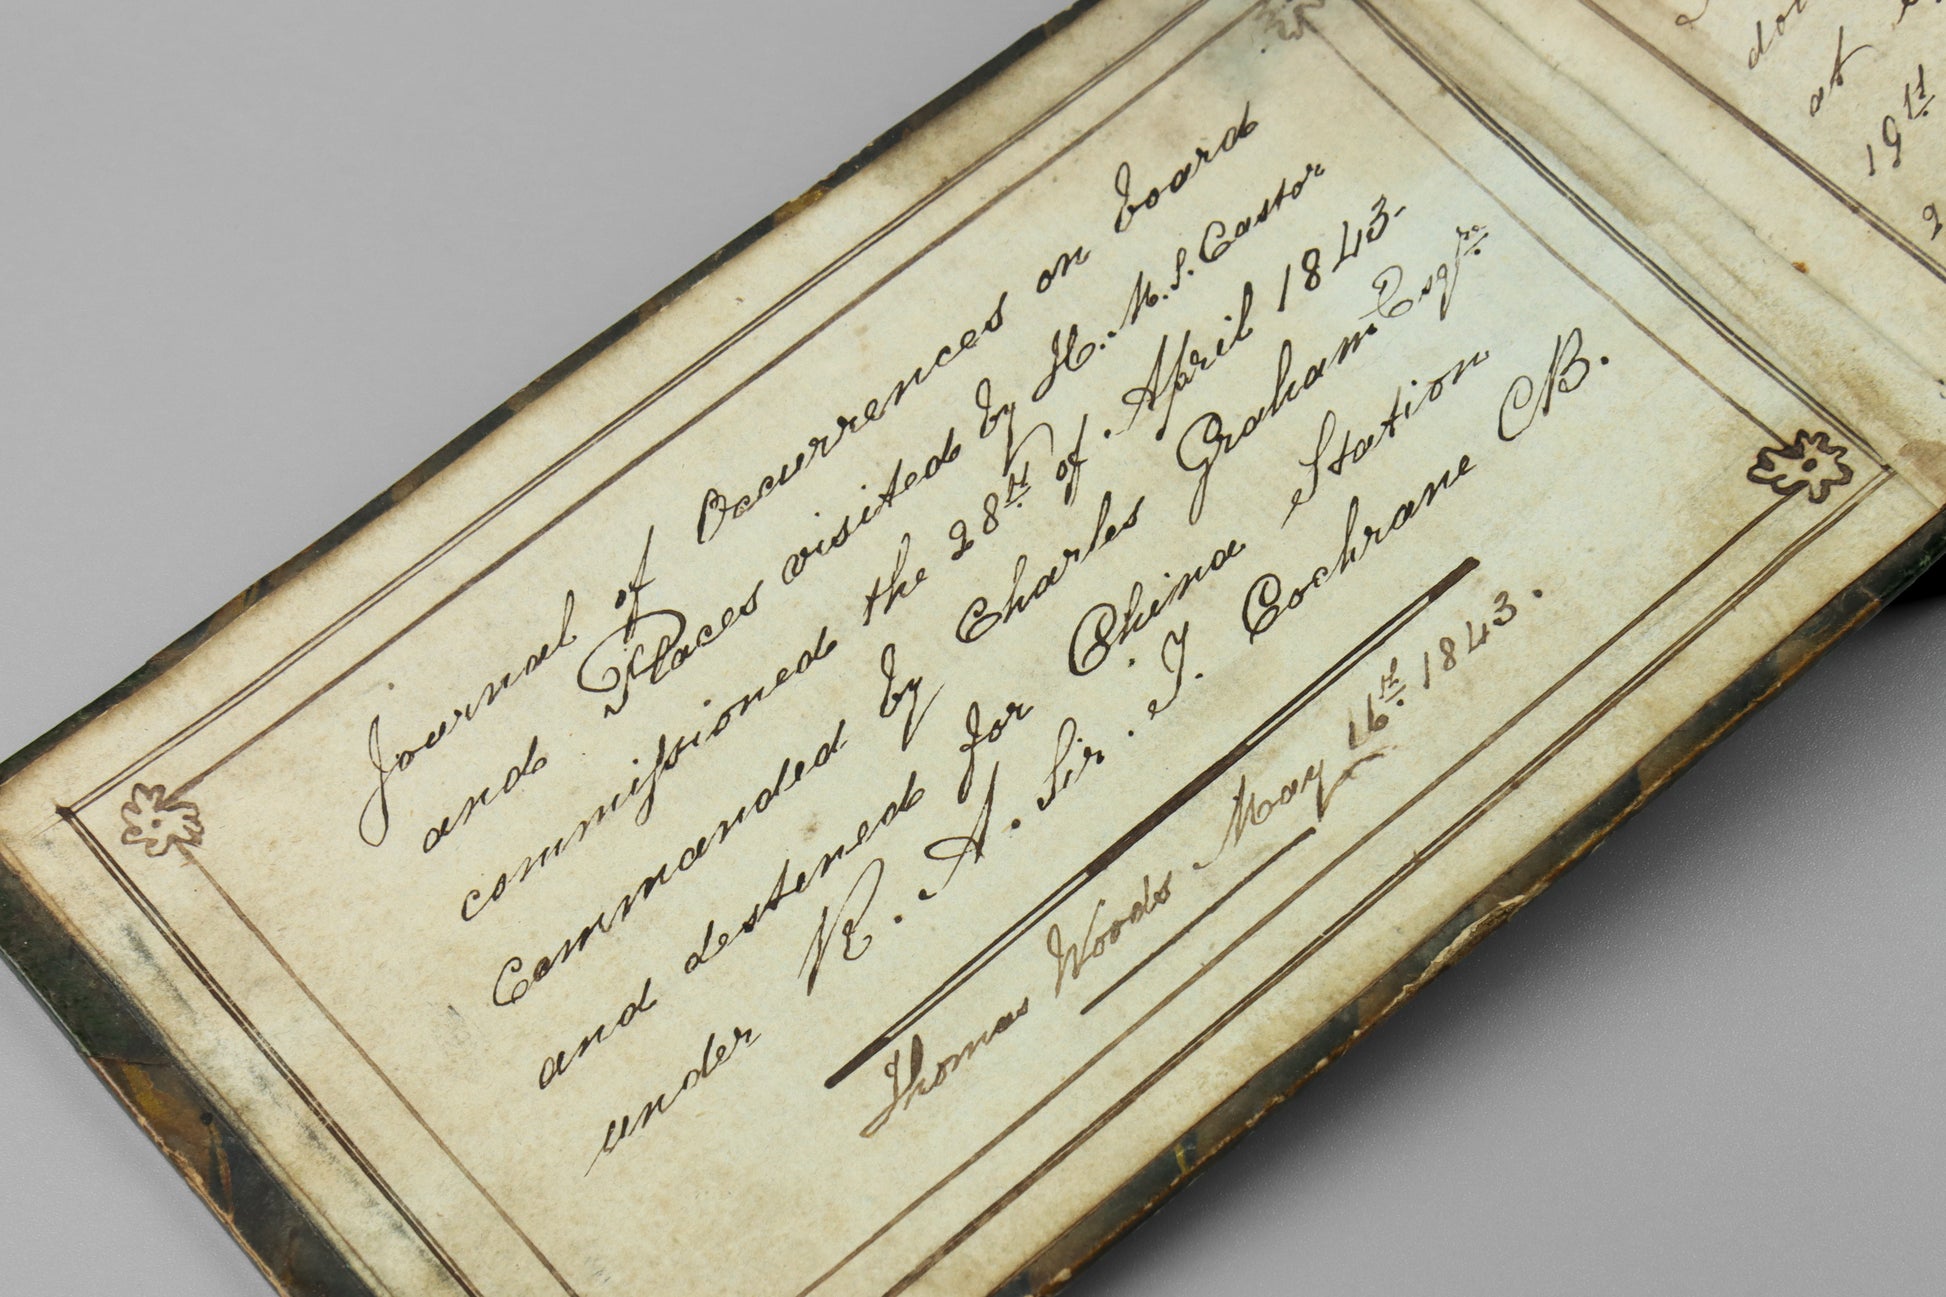 Journal of Occurrences on board
and Places visited by H. M. S. Castor
commissioned the 28th of April 1843-
Commanded by Charles Graham Esqre
and destined for China Station
under R. A. Sir. T. Cochrane CB.
Thomas Woods May 16th 1843.
at
19th